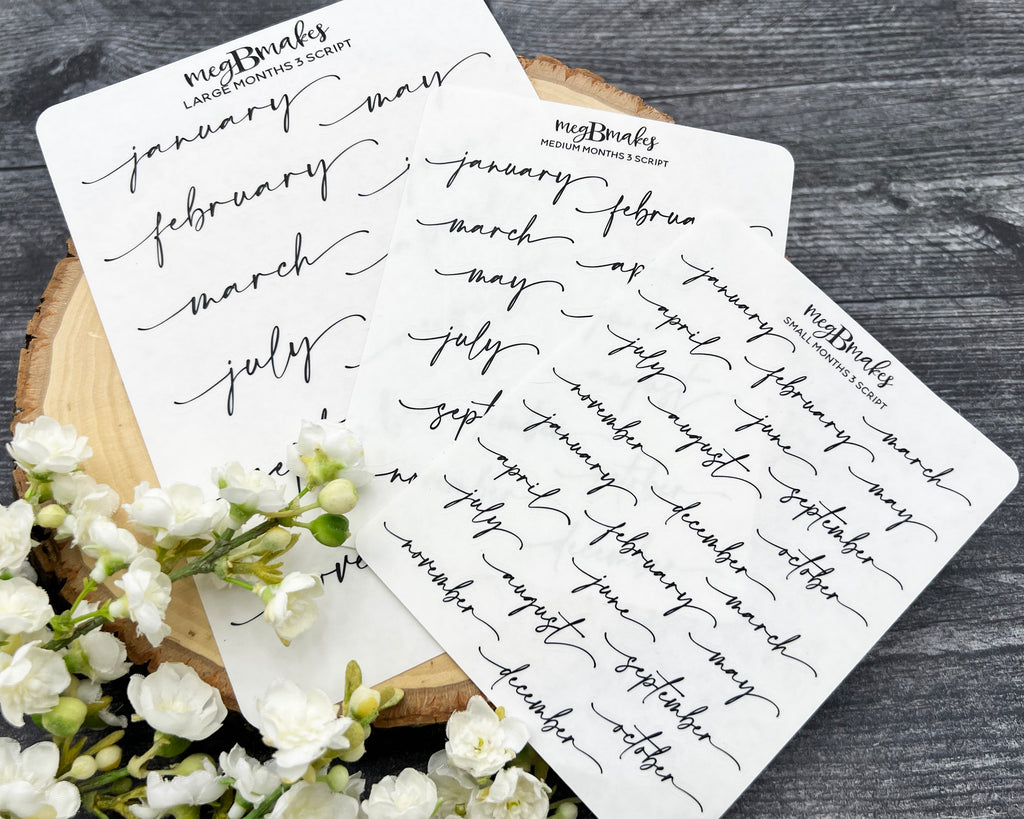 megBmakes
LARGE MONTHS 3 SCRIPT
january may
february
march
july
megBmakes
MEDIUM MONTHS 3 SCRIPT
january februa
march ap
may
july
sept
megBmakes
SMALL MONTHS 3 SCRIPT
january february march
april june may
july august september october
november december
january february march
april june may
july august september october
november december